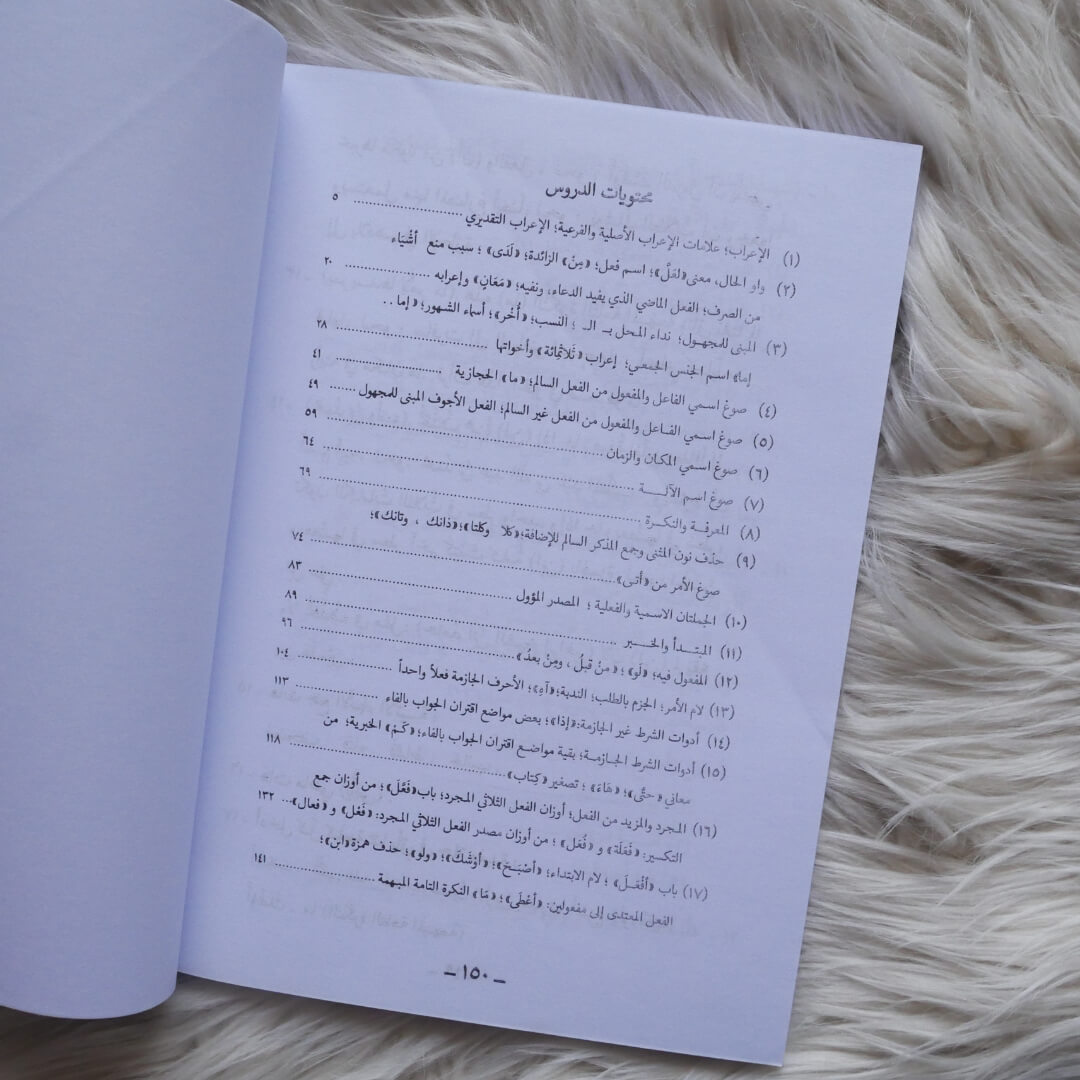 محتويات الدروس
(١) الإعراب؛ علامات الإعراب الأصلية والفرعية؛ الإعراب التقديري ........................ ٥
(٢) واو الحال، معنى «لعَلَّ»؛ اسم فعل؛ «مِنْ» الزائدة؛ «لَدَى» ؛ سبب منع أشْيَاء
من الصرف؛ الفعل الماضي الذي يفيد الدعاء، ونفيه؛ «مَعَانٍ» وإعرابه .................. ٢٠
(٣) المبنى للمجهول؛ نداء المحل بـ الـ ؛ النسب؛ «أُخَر»؛ أسماء الشهور؛ «إما . .
إما» اسم الجنس الجمعي؛ إعراب «ثَلاثمِائة» وأخواتها .................................. ٢٨
(٤) صوغ اسمي الفاعل والمفعول من الفعل السالم؛ «ما» الحجازية ........................ ٤١
(٥) صوغ اسمي الفاعل والمفعول من الفعل غير السالم؛ الفعل الأجوف المبنى للمجهول ....... ٤٩
(٦) صوغ اسمي المكان والزمان ............................................................ ٥٩
(٧) صوغ اسم الآلـــة .................................................................... ٦٤
(٨) المعرفــة والنكــرة .................................................................. ٦٩
(٩) حذف نون المثنى وجمع المذكر السالم للإضافة؛ «كلا وكلتا»؛ «ذانك ، وتانك»؛
صوغ الأمر من «أتى» .................................................................. ٧٤
(١٠) الجملتان الاسمية والفعلية ؛ المصدر المؤول ........................................ ٨٣
(١١) المبتـــدأ والخـــبر .............................................................. ٨٩
(١٢) المفعول فيه؛ «لَو»؛ «منْ قبلُ ، ومِنْ بعدُ» ........................................ ٩٦
(١٣) لام الأمر؛ الجزم بالطلب؛ الندبة؛ «آهِ»؛ الأحرف الجازمة فعلاً واحداً ................ ١٠٤
(١٤) أدوات الشرط غير الجازمة: «إذا»؛ بعض مواضع اقتران الجواب بالفاء ................ ١١٣
(١٥) أدوات الشرط الجـازمـة؛ بقية مواضع اقتران الجواب بالفاء؛ «كَـمْ» الخبرية؛ من
معاني «حتَّى»؛ «هَاءَ» ؛ تصغير «كِتاب» ................................................ ١١٨
(١٦) المجرد والمزيد من الفعل؛ أوزان الفعل الثلاثي المجرد؛ باب «فَعَّلَ»؛ من أوزان جمع
التكسير: «فَعَلَة» و «فُعَل» ؛ من أوزان مصدر الفعل الثلاثي المجرد: «فَعْل» و «فعال» ... ١٣٢
(١٧) باب «أَفْعَـلَ» ؛ لام الابتداء؛ «أصْبَـحَ»؛ «أَوْشَكَ»؛ «ولو»؛ حذف همزة «ابن»؛
الفعل المتعدى إلى مفعولين: «أَعْطَى»؛ «مَا» النكرة التامة المبهمة .................... ١٤١
ـ ١٥٠ ـ